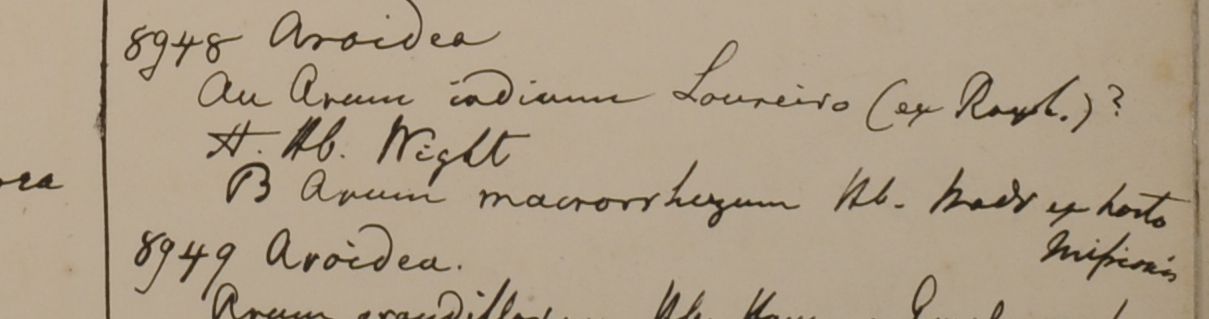 8948 Aroidea
An Arum indicum Loureiro (ex Roxb.)?
A. Hb. Wight
B Arum macrorrhizum Hb. Madr ex horto
Missionis
8949 Aroidea.
Arum Hb. Ham